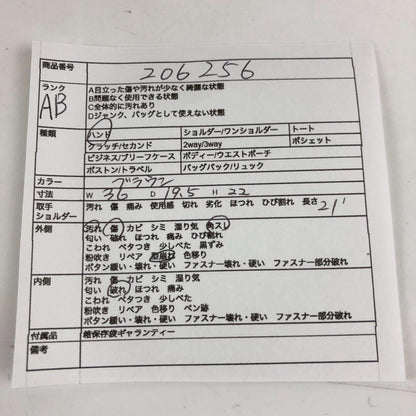 商品番号 206256
ランク AB
A目立った傷や汚れが少なく綺麗な状態
B問題なく使用できる状態
C全体的に汚れあり
Dジャンク、バッグとして使えない状態
種類 ハンド ショルダー/ワンショルダー トート
クラッチ/セカンド 2way/3way ポシェット
ビジネス/ブリーフケース ボディー/ウエストポーチ
ボストン/トラベル バックパック/リュック
カラー ブラウン
寸法 W 36 D 19.5 H 22
取手 ショルダー 汚れ 傷 痛み 使用感 切れ 劣化 ほつれ ひび割れ 長さ 21
外側 汚れ 傷 カビ シミ 湿り気 角スレ
匂い 破れ ほつれ 痛み ひび割れ
こわれ ベタつき 少しベタ 黒ずみ
粉吹き リペア 型崩れ 色移り
ボタン緩い・壊れ・硬い ファスナー壊れ・硬い ファスナー部分破れ
内側 汚れ 傷 カビ シミ 湿り気
匂い 破れ ほつれ 痛み
こわれ ベタつき 少しべた
粉吹き リペア 色移り ペン跡
ボタン緩い・壊れ・硬い ファスナー壊れ・硬い ファスナー部分破れ
付属品 箱保存袋ギャランティー
備考